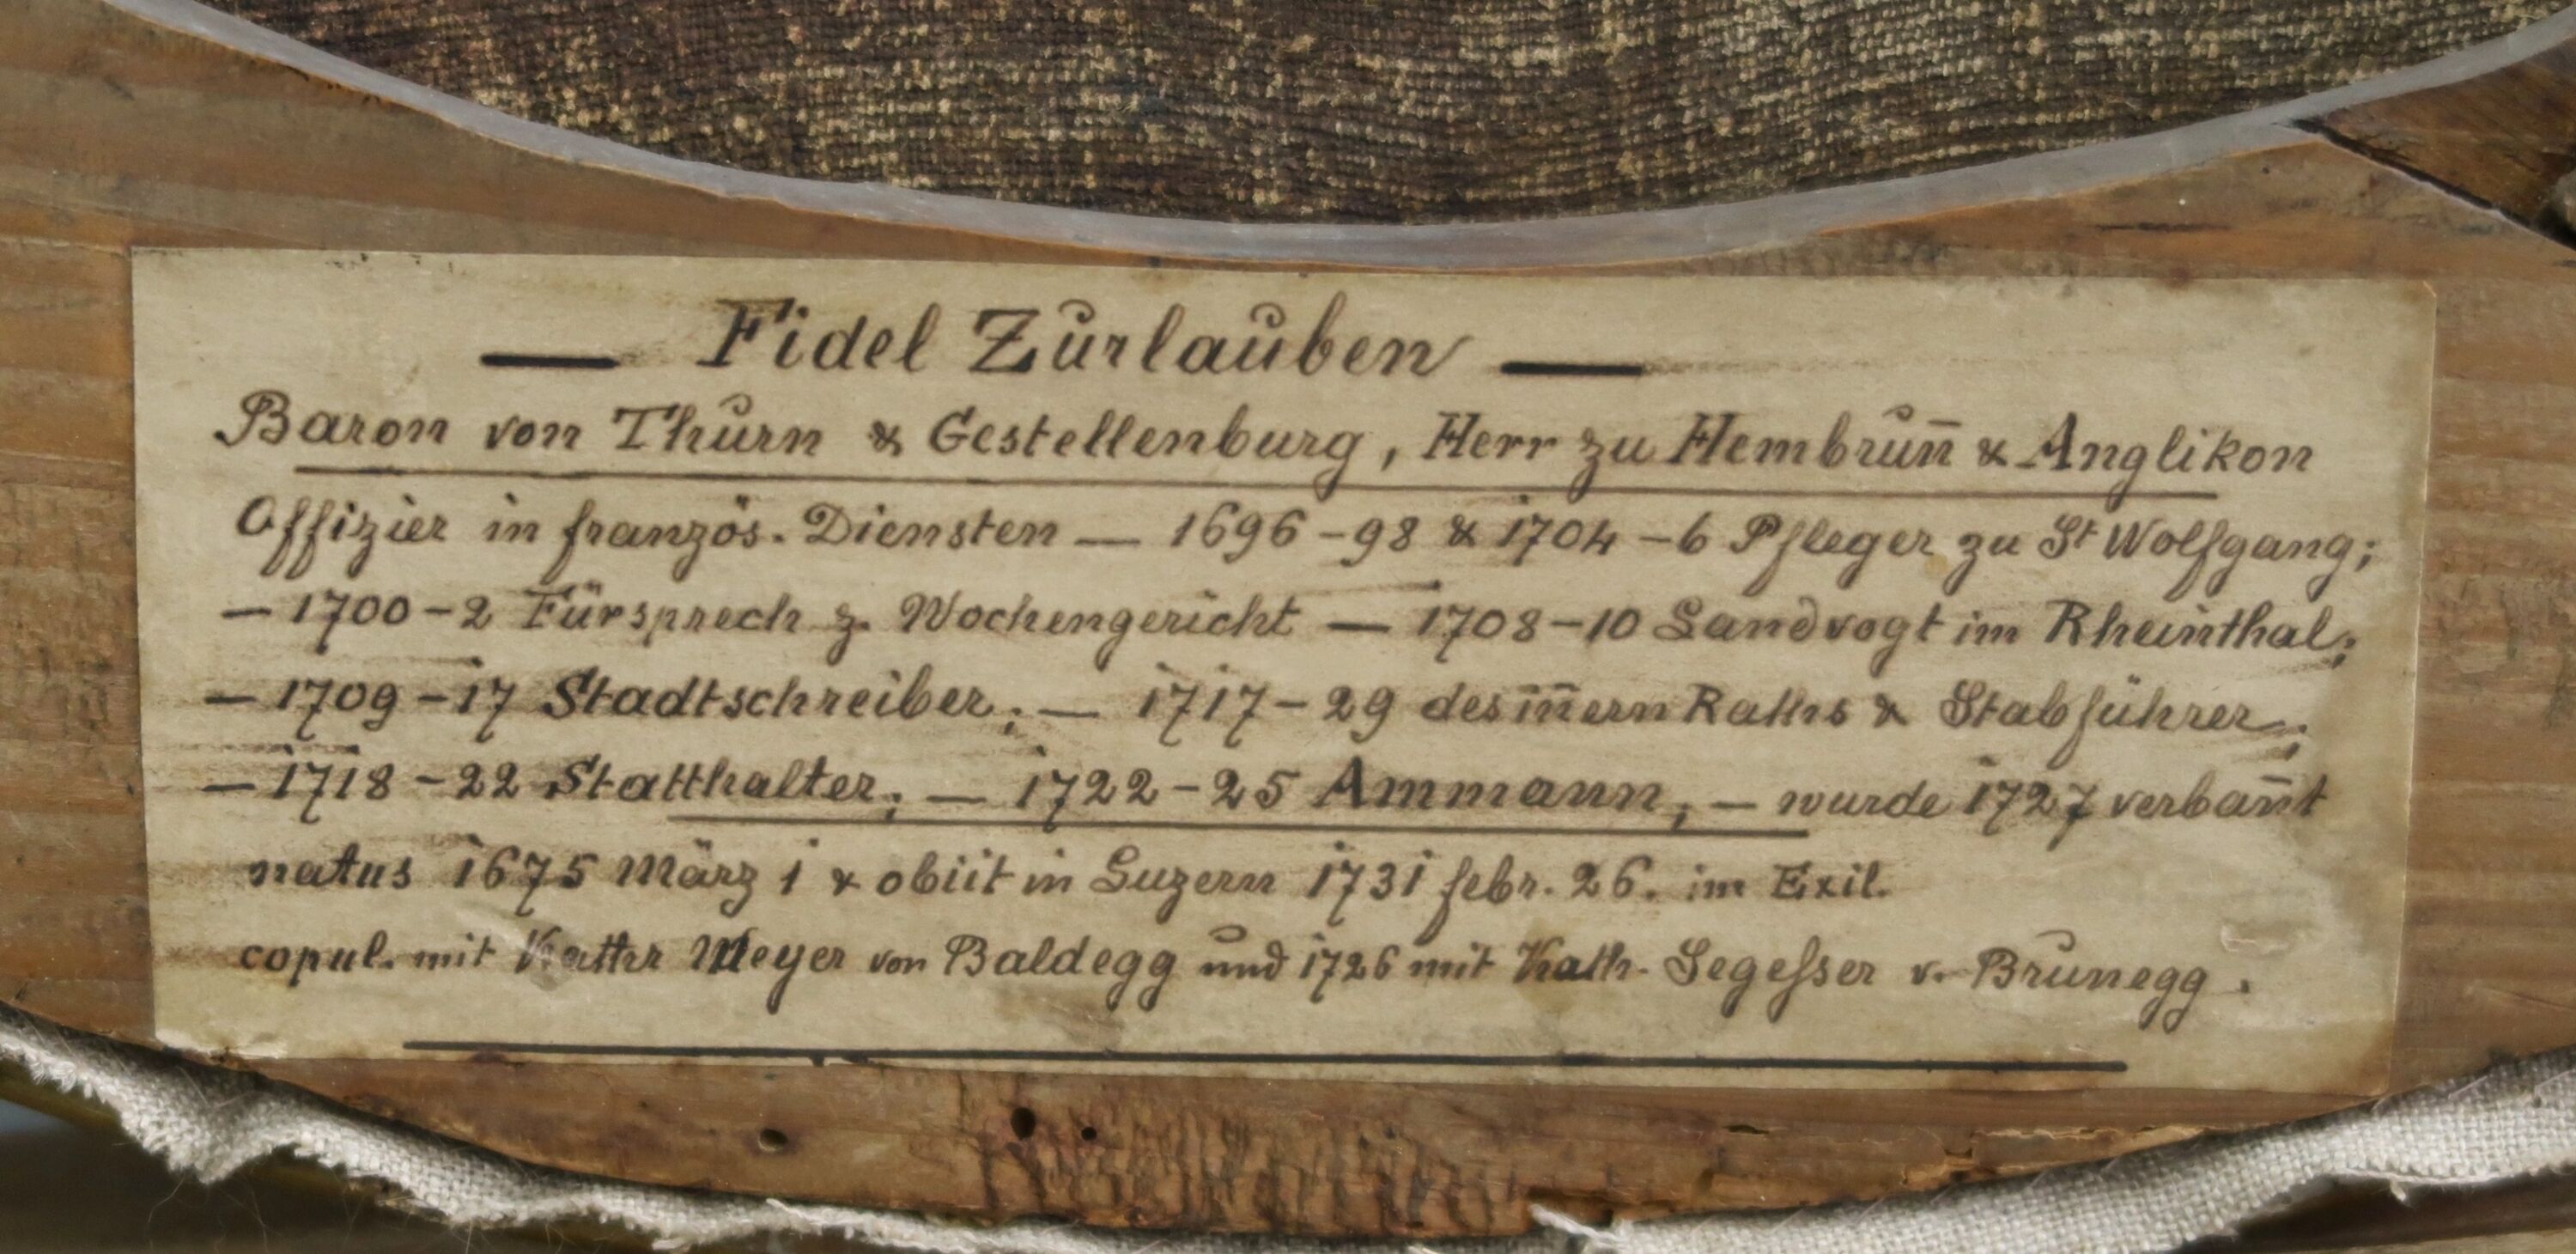 — Fidel Zurlauben —
Baron von Thurn & Gestellenburg, Herr zu Hembrun̄ & Anglikon
Offizier in französ. Diensten — 1696-98 & 1704-6 Pfleger zu St Wolfgang;
— 1700-2 Fürsprech z. Wochengericht — 1708-10 Landvogt im Rheinthal;
— 1709-17 Stadtschreiber; — 1717-29 des in̄ern Raths & Stabführer;
— 1718-22 Statthalter; — 1722-25 Ammann; — wurde 1727 verban̄t
natus 1675 März 1 & obiit in Luzern 1731 febr. 26. im Exil.
copul. mit Meyer von Baldegg und 1726 mit Kath. Segeſser v. Brunegg.